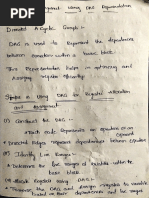 Using DAG Representation
Directed A cyclic Graph :-
DAG is used to Represent the dependence
between within a basic block.
This Representation helps in optimizing and
Assigning register efficiently.
Steps in Using DAG for Register Allocation
and Assignment
(1) Construct the DAG :-
Each node Represents an operation or an
operand
Directed Edges represent dependencies between operations
(2) Identify Live Ranges
Determine the live ranges of variable within the
basic block.
Assign Registers Using DAG :-
Traverse the DAG and Assign registers to variable
based on their dependencies and live ranges